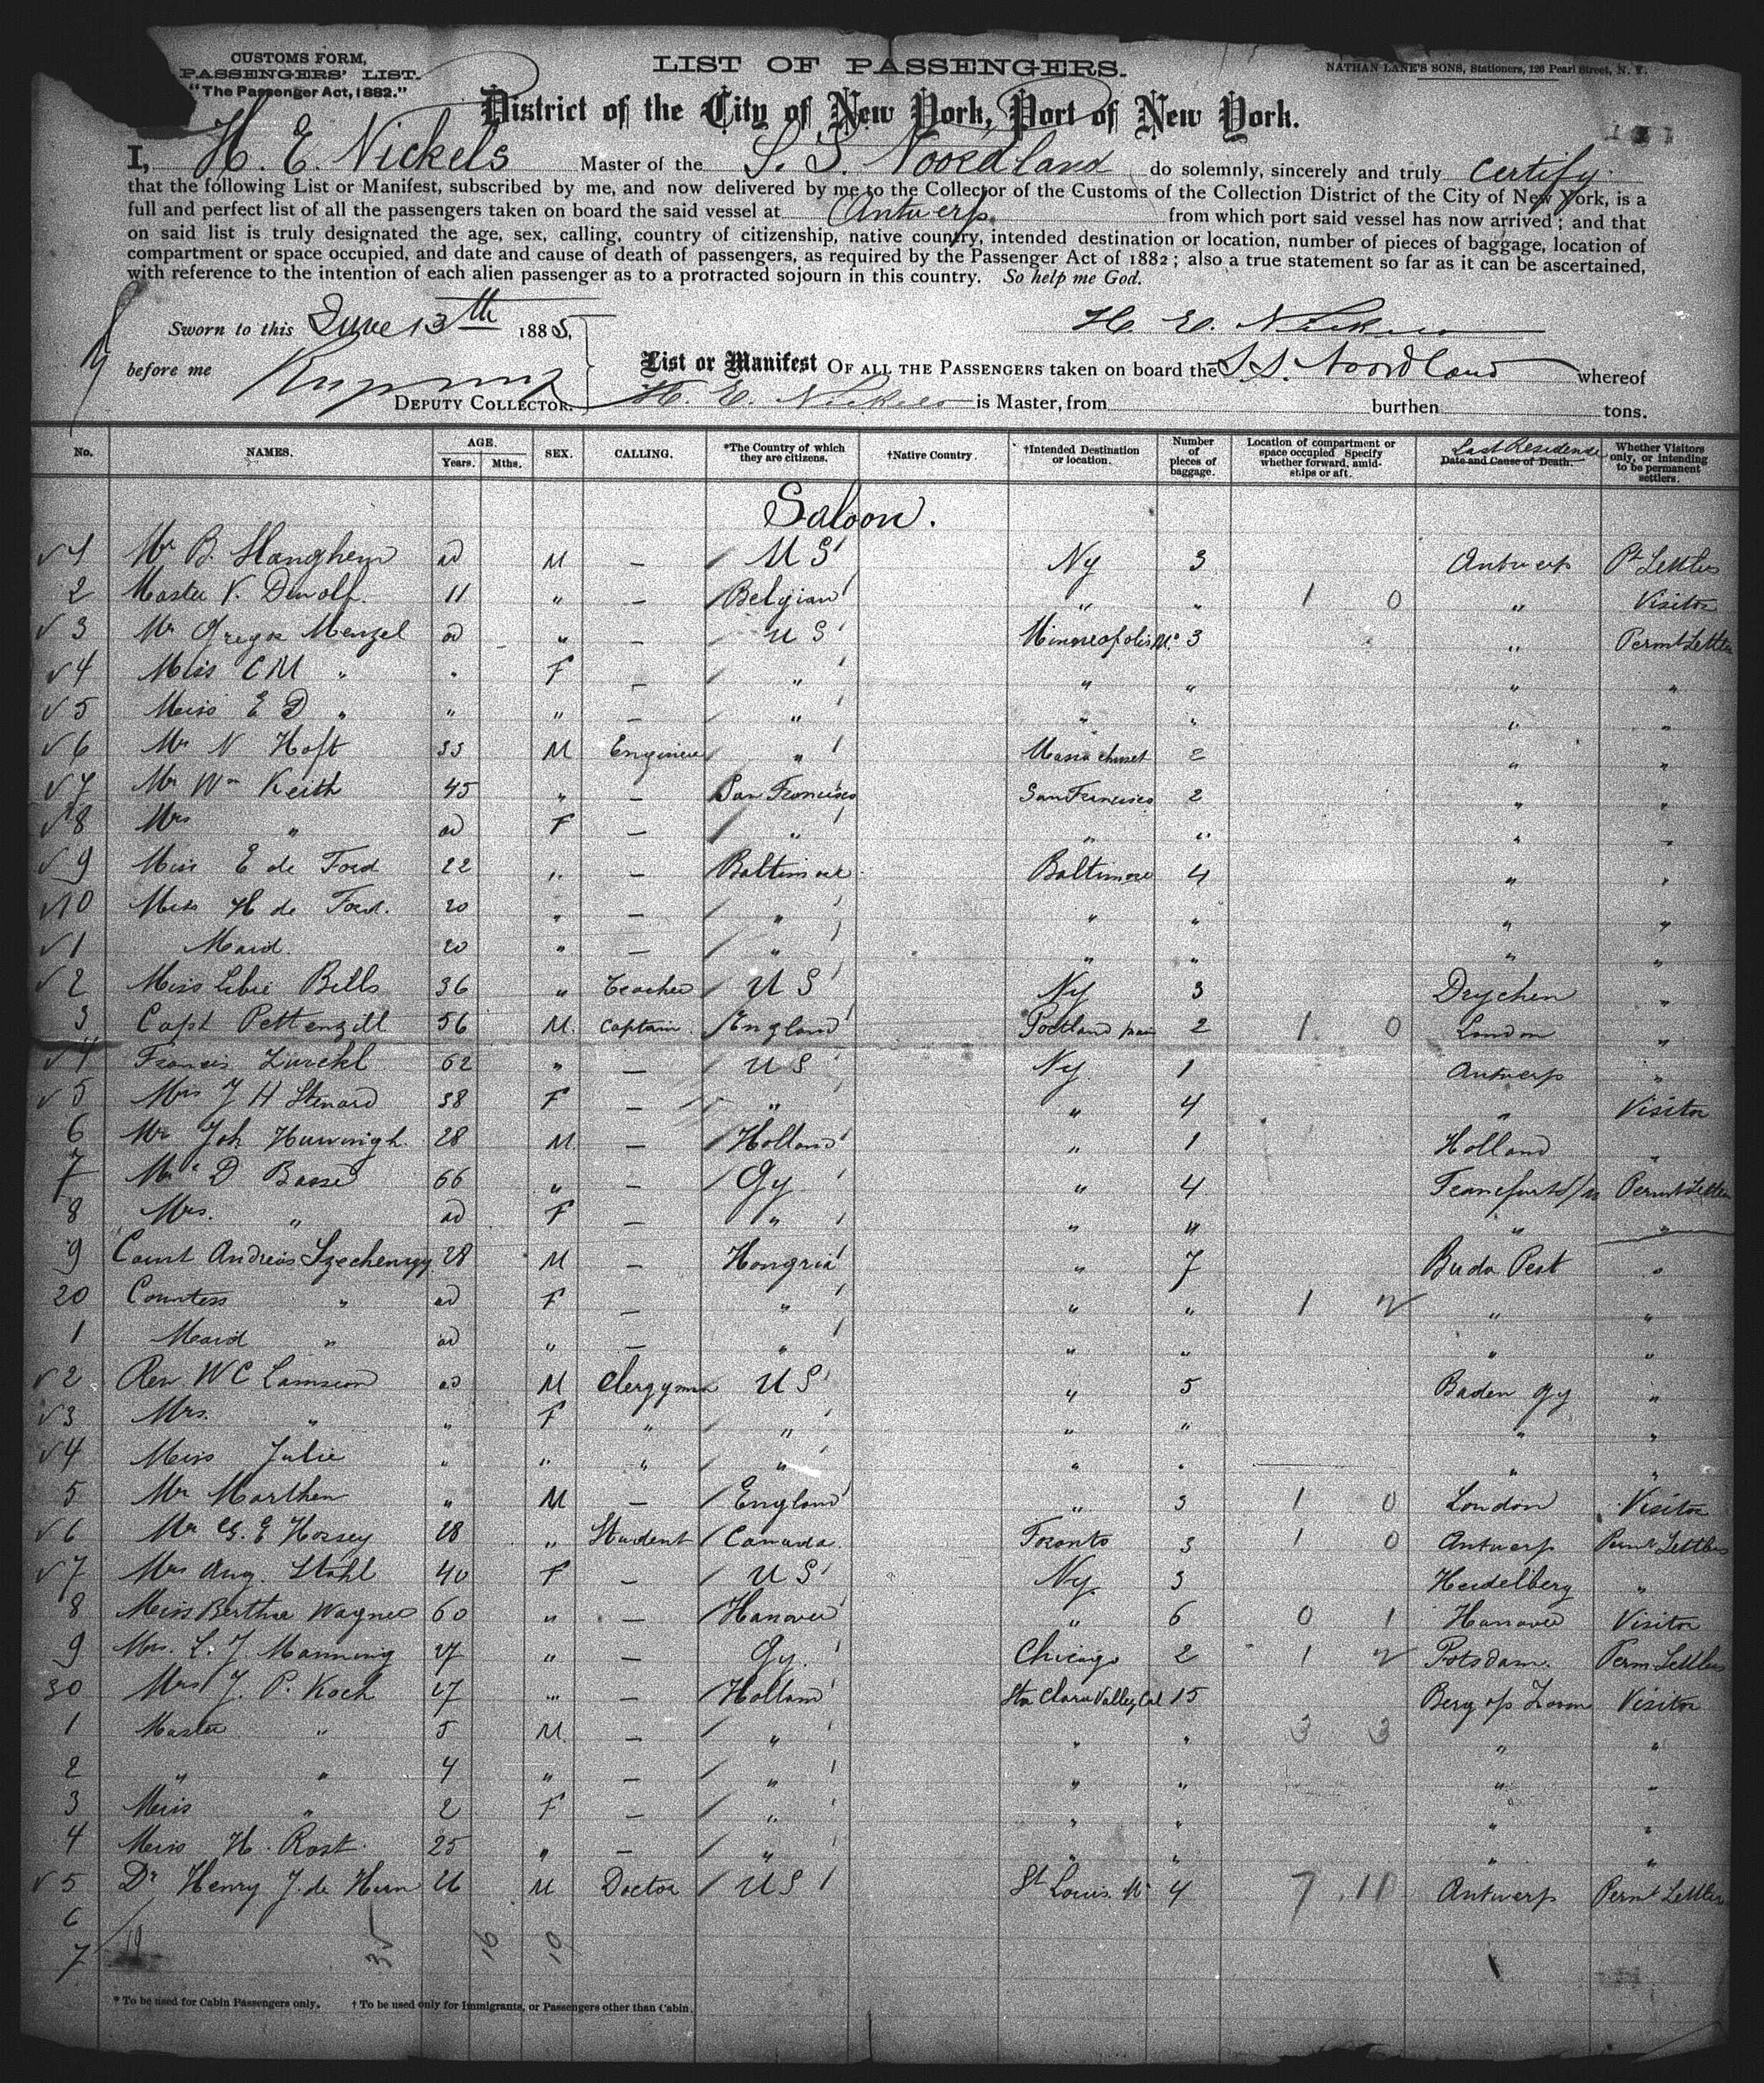 CUSTOMS FORM,
PASSENGERS' LIST.
"The Passenger Act, 1882."
LIST OF PASSENGERS.
NATHAN LANE'S SONS, Stationers, 126 Pearl Street, N. Y.
District of the City of New York, Port of New York.
I, H. E. Nickels Master of the S. S. Noordland do solemnly, sincerely and truly certify
that the following List or Manifest, subscribed by me, and now delivered by me to the Collector of the Customs of the Collection District of the City of New York, is a
full and perfect list of all the passengers taken on board the said vessel at Antwerp from which port said vessel has now arrived; and that
on said list is truly designated the age, sex, calling, country of citizenship, native country, intended destination or location, number of pieces of baggage, location of
compartment or space occupied, and date and cause of death of passengers, as required by the Passenger Act of 1882; also a true statement so far as it can be ascertained,
with reference to the intention of each alien passenger as to a protracted sojourn in this country. So help me God.
Sworn to this June 13th 1885, H. E. Nickels
before me
DEPUTY COLLECTOR.
List or Manifest OF ALL THE PASSENGERS taken on board the S.S. Noordland whereof
H. E. Nickels is Master, from burthen tons.
No. NAMES. AGE. Years. Mths. SEX. CALLING. *The Country of which they are citizens. †Native Country. †Intended Destination or location. Number of pieces of baggage. Location of compartment or space occupied Specify whether forward, amidships or aft. Last Residence Date and Cause of Death. Whether Visitors only, or intending to be permanent settlers.
Saloon.
1 Mr B. Hanghem ad M — U S Ny 3 Antwerp Pt Settler
2 Master V. Dewolf 11 " — Belgian " " 1 0 " Visitor
3 Mr Gregor Menzel ad " — U S Minneapolis 3 " Permt Settler
4 Miss C M " " F — " " " " "
5 Miss E D " " " — " " " " "
6 Mr N Hoft 33 M Engineer " Massachuset 2 " "
7 Mr Wm Keith 45 " — San Francisco San Francisco 2 " "
8 Mrs " ad F — " " " " "
9 Miss E de Ford 22 " — Baltimore Baltimore 4 " "
10 Miss H de Ford. 20 " — " " " " "
1 Maid. 20 " — " " " " "
2 Miss Libie Bills 36 " Teacher U S Ny 3 "
3 Capt Pettengill 56 M. Captain England Portland 2 1 0 London "
4 Francis 62 " — U S Ny. 1 Antwerp "
5 Mrs J H Stenard 38 F — " " 4 " Visitor
6 Mr Joh 28 M — Holland " 1 Holland "
7 Mr D Basse 66 " — Gy " 4 Francfurt Permt Settler
8 Mrs. " ad F — " " " " "
9 Count Andreas Szechenyy 28 M — Hongrie " 7 Buda Pest "
20 Countess " ad F — " " " 1 2 " "
1 Maid " ad " — " " " " "
2 Rev W C Lamson ad M Clergyman U S " 5 Baden Gy "
3 Mrs. " " F " " " " " "
4 Miss Julie " " " " " " " "
5 Mr Marthen " M — England " 3 1 0 London Visitor
6 Mr G. E Horsey 28 " Student Canada Toronto 3 1 0 Antwerp Permt Settler
7 Mrs Aug. Stahl 40 F — U S Ny. 3 Heidelberg "
8 Miss Berthe Wagner 60 " — Hanover " 6 0 1 Hanover Visitor
9 Mrs. L. J. Manning 27 " — Gy. Chicago 2 1 2 Potsdam. Perm. Settler
30 Mrs J. P. Koch 27 " — Holland Sta Clara Valley, Cal 15 Berg op Zoom Visitor
1 Master " 5 M. — " " " 3 3 " "
2 " " 4 " — " " " " "
3 Miss " 2 F — " " " " "
4 Miss H. Rost. 25 " — " " " " "
5 Dr Henry J. de 26 M Doctor U S St Louis 4 7 11 Antwerp Permt Settler
6
7 19 35 16 10
* To be used for Cabin Passengers only. † To be used only for Immigrants, or Passengers other than Cabin.